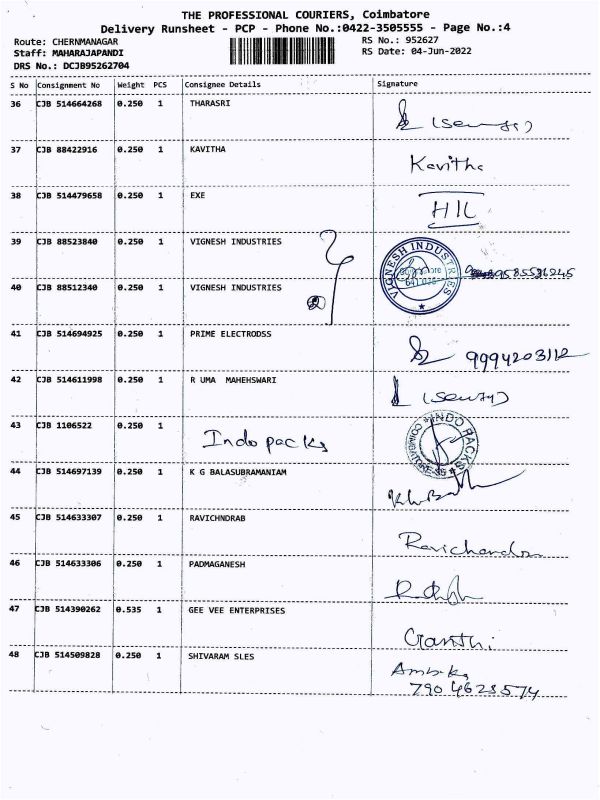 THE PROFESSIONAL COURIERS, Coimbatore
Delivery Runsheet - PCP - Phone No.:0422-3505555 - Page No.:4
Route: CHERNMANAGAR RS No.: 952627
Staff: MAHARAJAPANDI RS Date: 04-Jun-2022
DRS No.: DCJB95262704
S No Consignment No Weight PCS Consignee Details Signature
36 CJB 514664268 0.250 1 THARASRI
37 CJB 88422916 0.250 1 KAVITHA Kavitha
38 CJB 514479658 0.250 1 EXE HIL
39 CJB 88523840 0.250 1 VIGNESH INDUSTRIES
VIGNESH INDUSTRIES
9585536245
40 CJB 88512340 0.250 1 VIGNESH INDUSTRIES
41 CJB 514694925 0.250 1 PRIME ELECTRODSS 9994203112
42 CJB 514611998 0.250 1 R UMA MAHEHSWARI
43 CJB 1106522 0.250 1 Indo packs
INDO PACKS COIMBATORE
44 CJB 514697139 0.250 1 K G BALASUBRAMANIAM
45 CJB 514633307 0.250 1 RAVICHNDRAB Ravichandran
46 CJB 514633306 0.250 1 PADMAGANESH
47 CJB 514390262 0.535 1 GEE VEE ENTERPRISES Ganthi
48 CJB 514509828 0.250 1 SHIVARAM SLES
7904623574